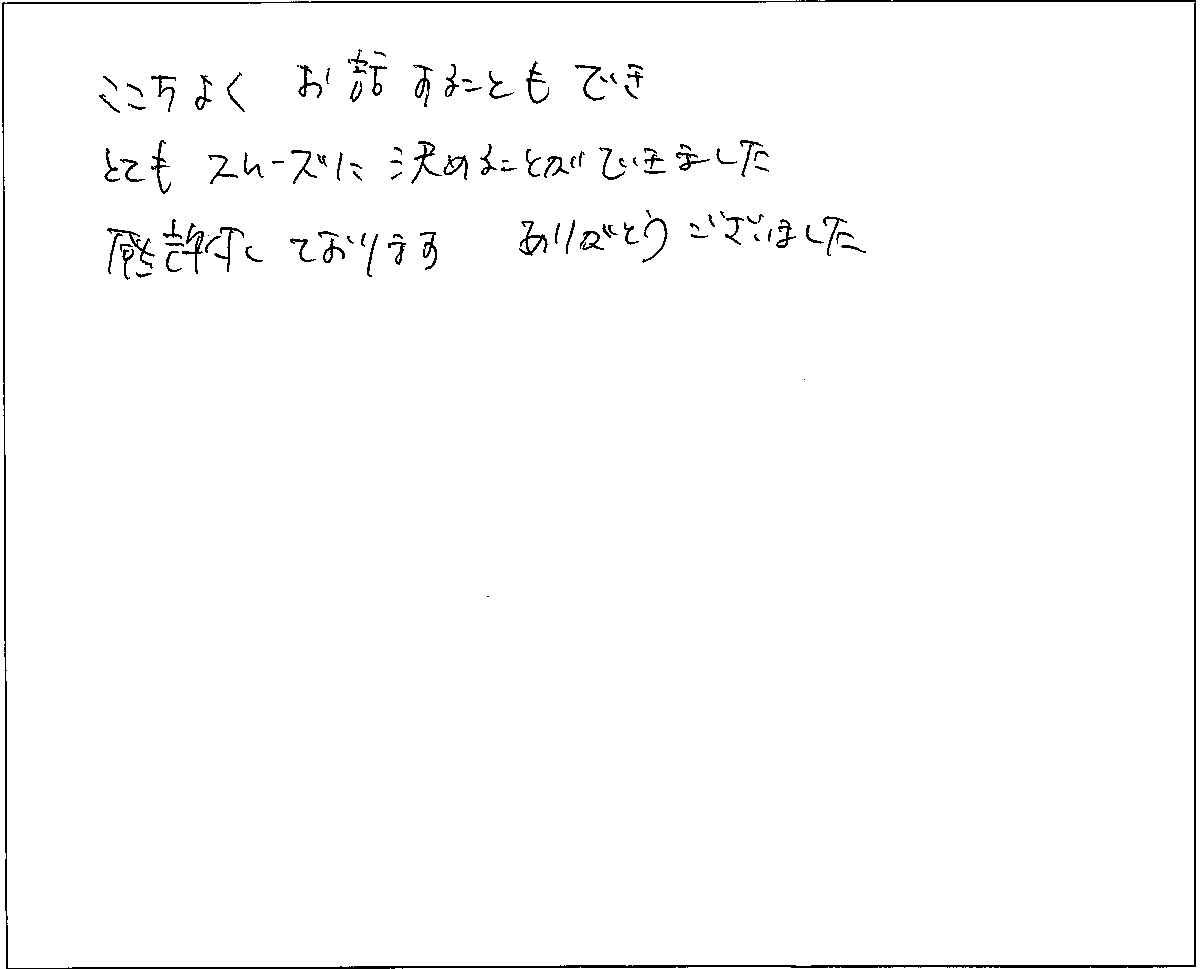 ここちよく お話することもでき
とても スムーズに 決めることができました
感謝しております ありがとうございました